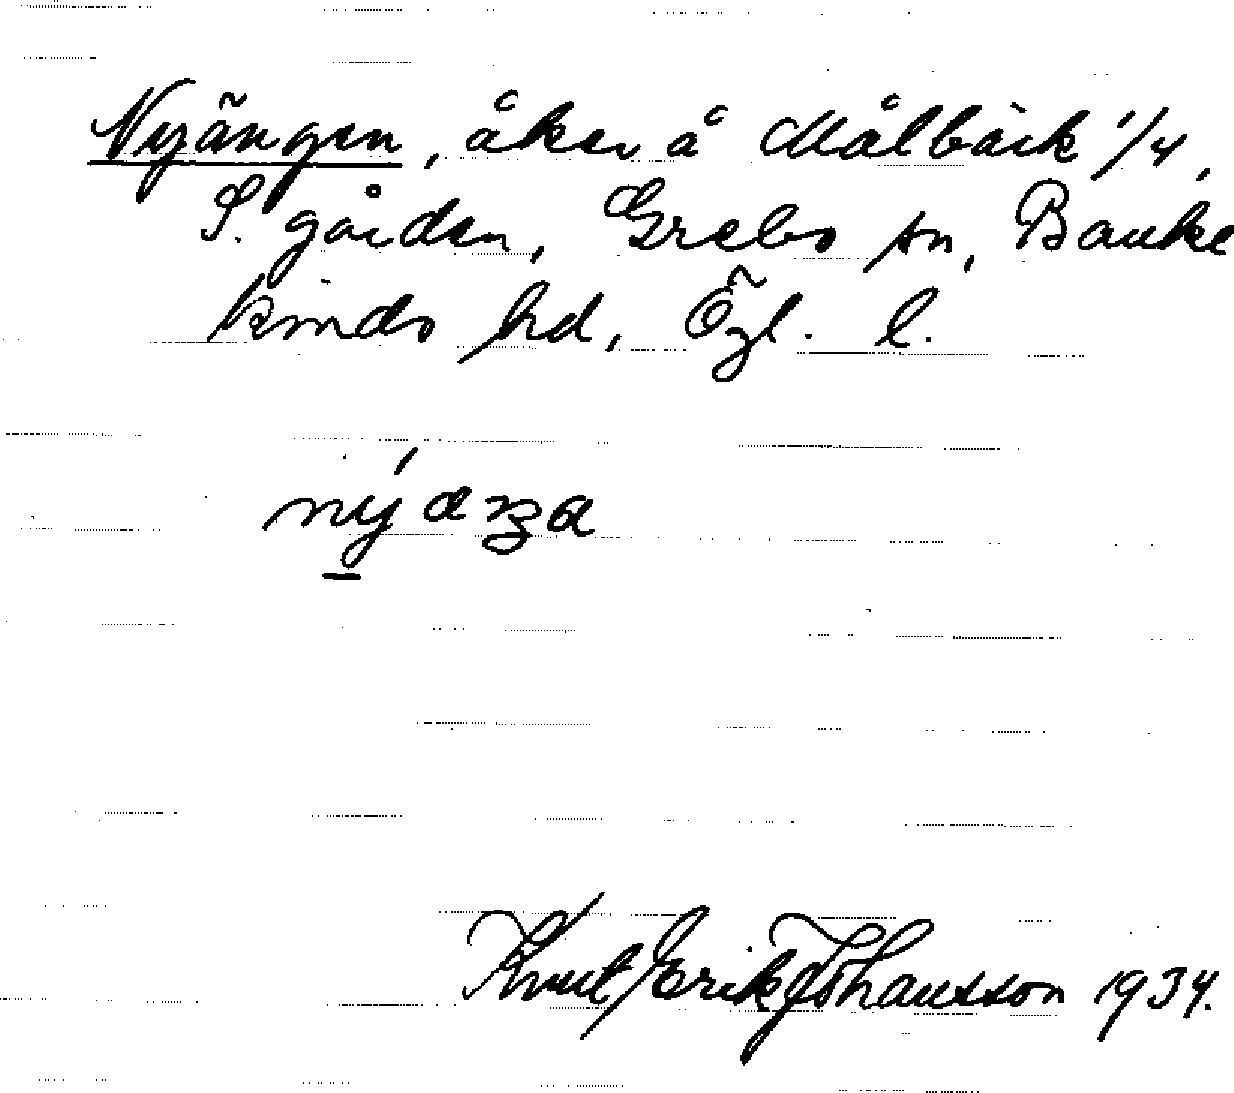 Nyängen, åker å Målbäck 1/4,
S. gården, Grebo sn, Banke
kinds hd, Ögl. l.
nýaŋa
Knut Erik Johansson 1934.